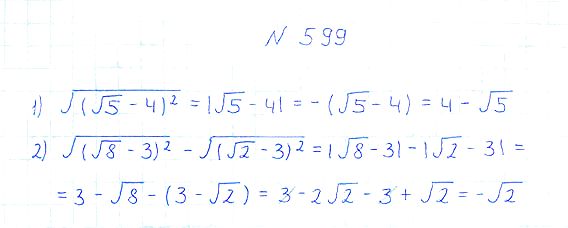 N 599
1) √(√5 - 4)² = |√5 - 4| = - (√5 - 4) = 4 - √5
2) √(√8 - 3)² - √(√2 - 3)² = |√8 - 3| - |√2 - 3| =
= 3 - √8 - (3 - √2) = 3 - 2√2 - 3 + √2 = -√2